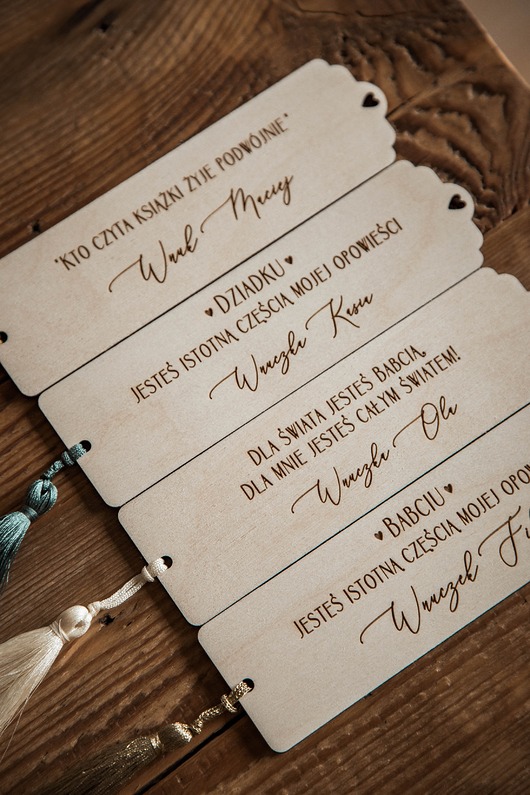 "KTO CZYTA KSIĄŻKI ŻYJE PODWÓJNIE"
Wnuk Maciej
DZIADKU
JESTEŚ ISTOTNĄ CZĘŚCIĄ MOJEJ OPOWIEŚCI
Wnuczka Kasia
DLA ŚWIATA JESTEŚ BABCIĄ,
DLA MNIE JESTEŚ CAŁYM ŚWIATEM!
Wnuczka Ola
BABCIU
JESTEŚ ISTOTNĄ CZĘŚCIĄ MOJEJ
Wnuczek